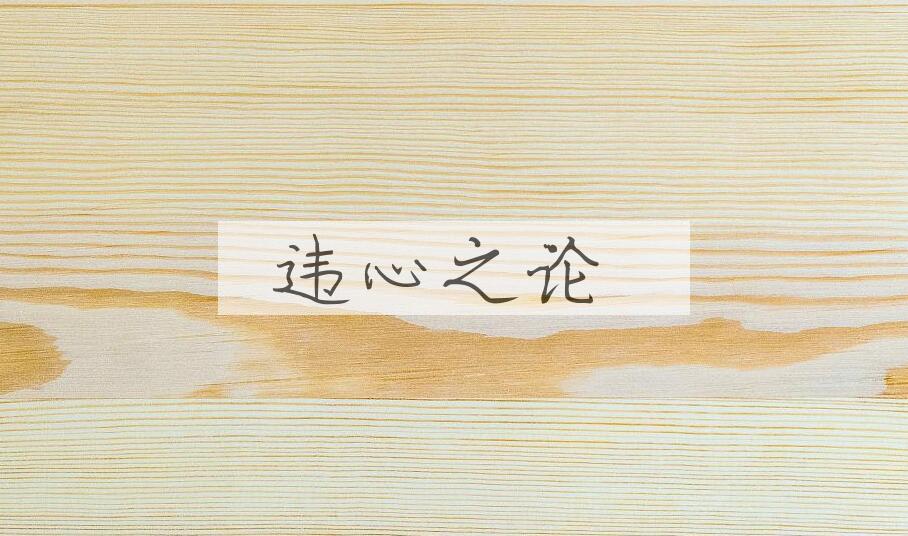 违心之论